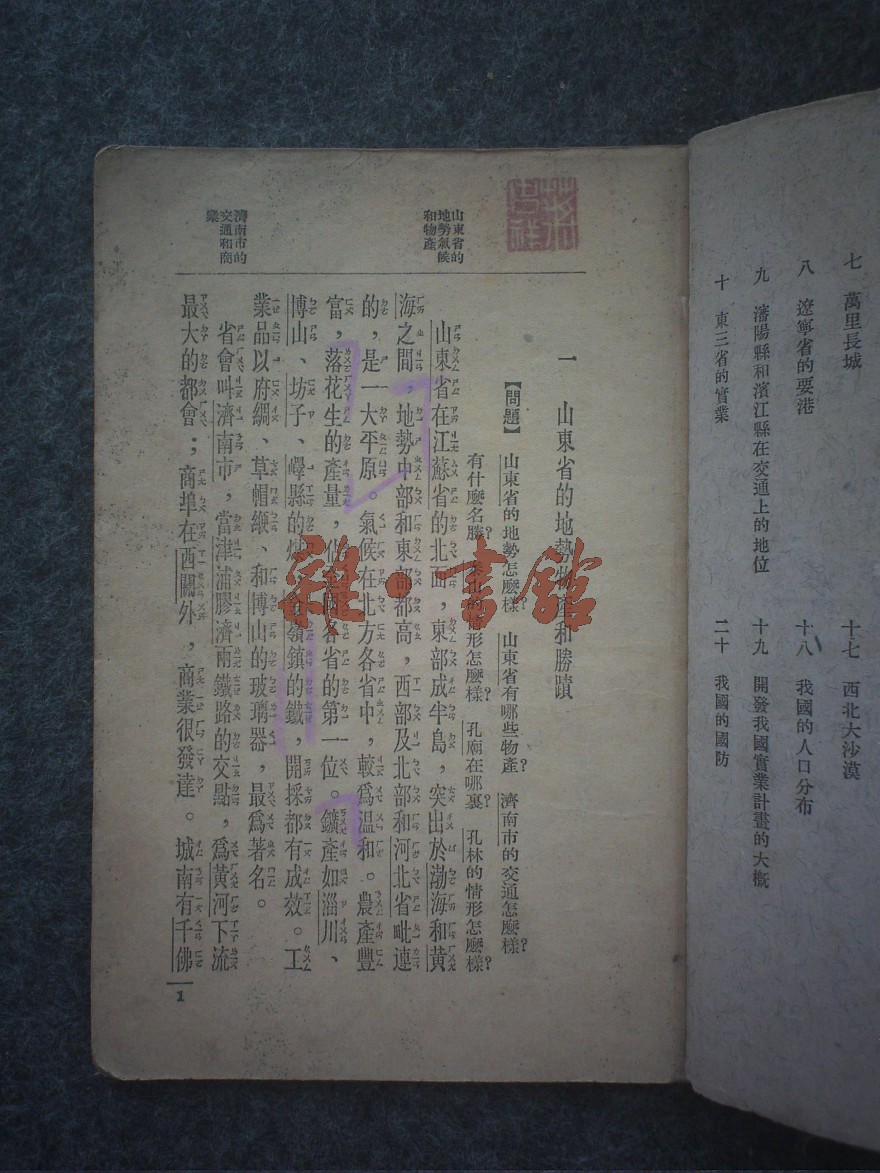 七 萬里長城
八 遼寧省的要港
九 瀋陽縣和濱江縣在交通上的地位
十 東三省的實業
十七 西北大沙漠
十八 我國的人口分布
十九 開發我國實業計畫的大概
二十 我國的國防
一 山東省的地勢物產和勝蹟
【問題】 山東省的地勢怎麼樣? 山東省有哪些物產? 濟南市的交通怎麼樣?
有什麼名勝? 的情形怎麼樣? 孔廟在哪裏? 孔林的情形怎麼樣?
山東省的
地勢氣候
和物產
山東省在江蘇省的北面,東部成半島,突出於渤海和黃
海之間,地勢中部和東部都高,西部及北部和河北省毗連
的,是一大平原。氣候在北方各省中,較爲温和。農產豐
富,落花生的產量,佔全國各省的第一位。鑛產如淄川、
博山、坊子、嶧縣的煤,金嶺鎮的鐵,開採都有成效。工
業品以府綢、草帽緶、和博山的玻璃器,最爲著名。
濟南市的
交通和商
業
省會叫濟南市,當津浦膠濟兩鐵路的交點,爲黃河下流
最大的都會;商埠在西關外,商業很發達。城南有千佛
1
雜·書館